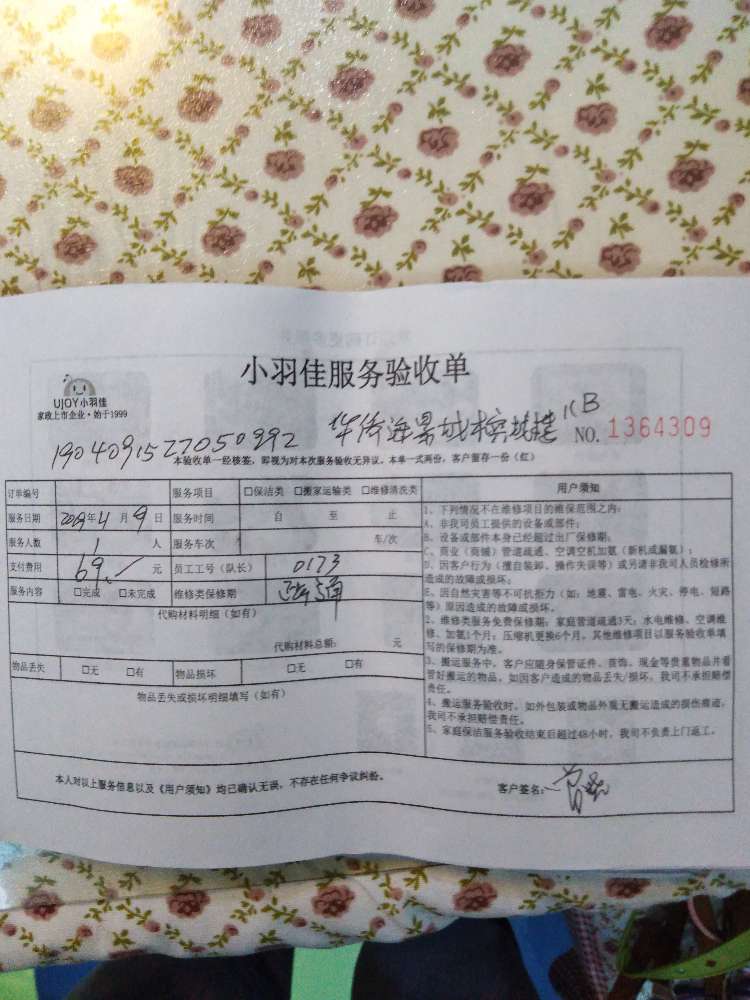 小羽佳服务验收单
UJOY小羽佳
家政上市企业·始于1999
19040915227050992 华侨海景城 11B
NO. 1364309
本验收单一经接签,即视为对本次服务验收无异议。本单一式两份,客户留存一份(红)
订单编号 服务项目 □保洁类 □搬家运输类 □维修清洗类
服务日期 2019年4月9日 服务时间 自 至 止
服务人数 1 人 服务车次 车/次
支付费用 69. 元 员工工号(队长) 0173
服务内容 □完成 □未完成 维修类保修期
代购材料明细(如有)
代购材料总额: 元
物品丢失 □无 □有 物品损坏 □无 □有
物品丢失或损坏明细填写(如有)
用户须知
1、下列情况不在维修项目的维保范围之内:
A、非我司员工提供的设备或部件;
B、设备或部件本身已经超过出厂保修期;
C、商业(商铺)管道疏通、空调空机加氨(新机或漏氨);
D、因客户行为(擅自装卸、操作失误等)或另请非我司人员检修所
造成的故障或损坏;
E、因自然灾害等不可抗拒力(如:地震、雷电、火灾、停电、短路
等)原因造成的故障或损坏。
2、维修类服务免费保修期:家庭管道疏通3天;水电维修、空调维
修、加氨1个月;压缩机更换6个月,其他维修项目以服务验收单填
写的保修期为准。
3、搬运服务中,客户应随身保管证件、首饰、现金等贵重物品并看
管好搬运的物品,如因客户造成的物品丢失/损坏,我司不承担赔偿
责任。
4、搬运服务验收时,如外包装或物品外观无搬运造成的损伤痕迹,
我司不承担赔偿责任。
5、家庭保洁服务验收结束后超过48小时,我司不负责上门返工。
本人对以上服务信息以及《用户须知》均已确认无误,不存在任何争议纠纷。
客户签名: